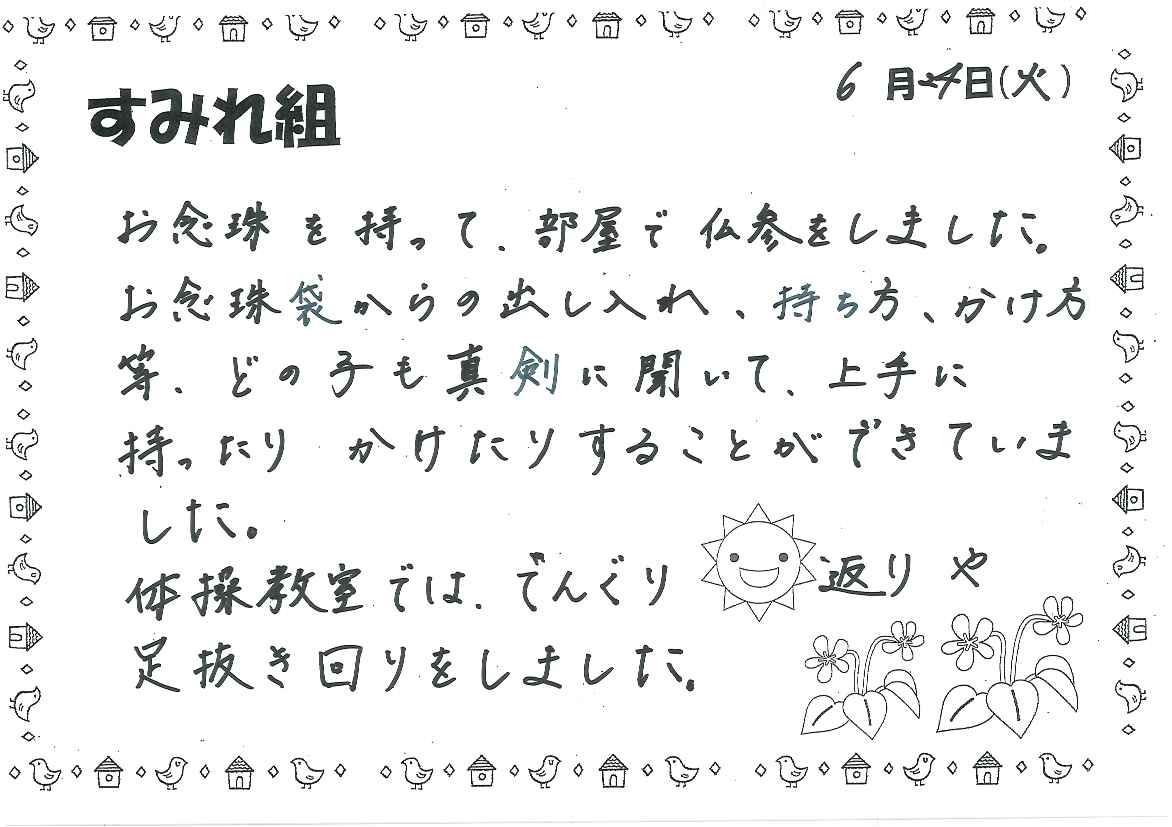 6月24日(火)
すみれ組
お念珠を持って、部屋で仏参をしました。
お念珠袋からの出し入れ、持ち方、かけ方
等、どの子も真剣に聞いて、上手に
持ったり かけたりすることができていま
した。
体操教室では、でんぐり返りや
足抜き回りをしました。